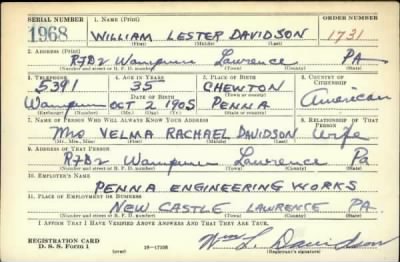 SERIAL NUMBER 1. NAME (Print) ORDER NUMBER
1968 WILLIAM LESTER DAVIDSON 1731
(First) (Middle) (Last)
2. ADDRESS (Print)
RFD2 Wampum Lawrence PA
(Number and street or R. F. D. number) (Town) (County) (State)
3. TELEPHONE 4. AGE IN YEARS 5. PLACE OF BIRTH 6. COUNTRY OF CITIZENSHIP
5391 35 CHEWTON
DATE OF BIRTH (Town or county) American
Wampum OCT 2 1905 PENNA
(Exchange) (Number) (Mo.) (Day) (Yr.) (State or country)
7. NAME OF PERSON WHO WILL ALWAYS KNOW YOUR ADDRESS 8. RELATIONSHIP OF THAT PERSON
Mrs VELMA RACHAEL DAVIDSON Wife
(Mr., Mrs., Miss) (First) (Middle) (Last)
9. ADDRESS OF THAT PERSON
RFD2 Wampum Lawrence Pa
(Number and street or R. F. D. number) (Town) (County) (State)
10. EMPLOYER'S NAME
PENNA ENGINEERING WORKS
11. PLACE OF EMPLOYMENT OR BUSINESS
NEW CASTLE LAWRENCE PA.
(Number and street or R. F. D. number) (Town) (County) (State)
I AFFIRM THAT I HAVE VERIFIED ABOVE ANSWERS AND THAT THEY ARE TRUE.
REGISTRATION CARD Wm L. Davidson
D. S. S. Form 1 (over) 16—17105 (Registrant's signature)